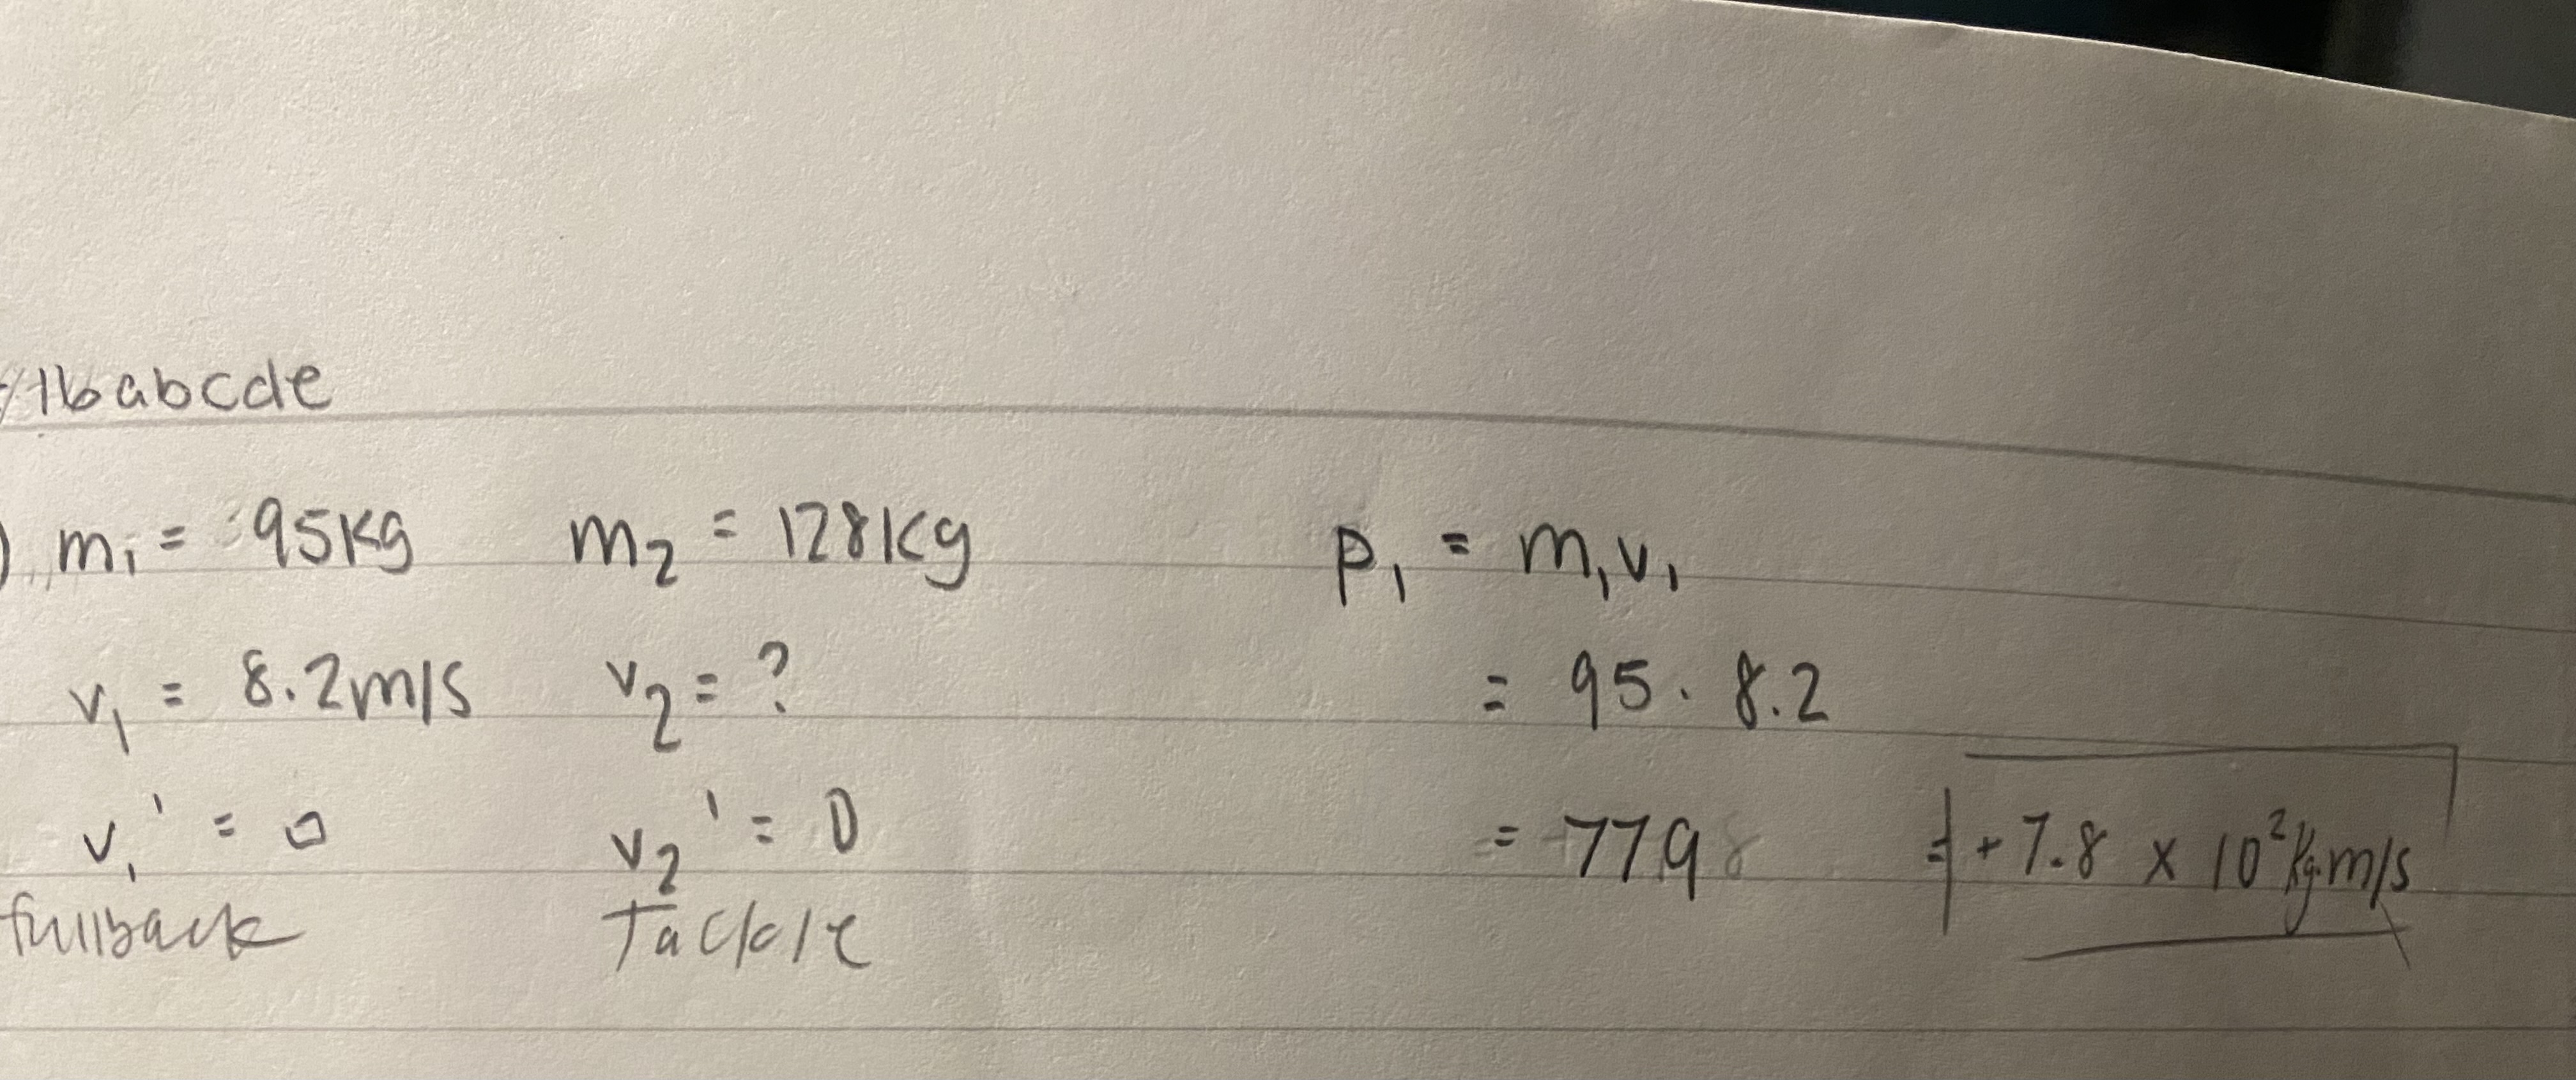 16abcde
) m₁ = 95kg m₂ = 128kg p₁ = m₁v₁
v₁ = 8.2m/s v₂ = ? = 95 · 8.2
v₁' = 0 v₂' = 0 = 779 = +7.8 x 10² kg·m/s
fullback Tackle